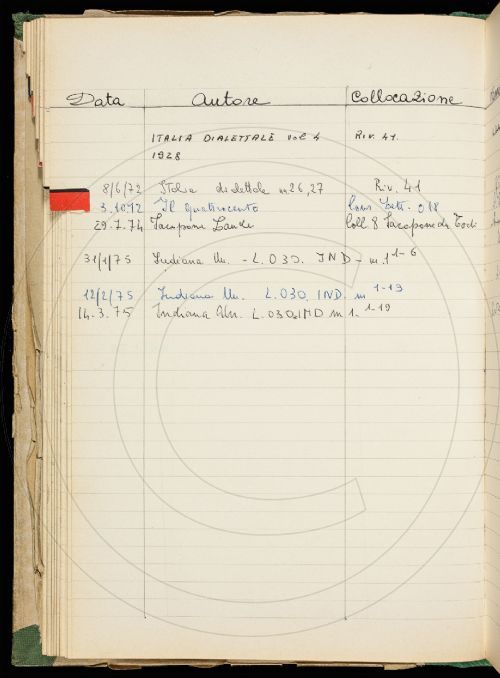 Data Autore Collocazione
ITALIA DIALETTALE vol 4 RIV. 41
1928
8/6/72 Italia dialettale n. 26, 27 Riv. 41
3.10.72 Il Quattrocento Cons. Lett. 018
29.7.74 Jacopone Laude Coll 8 Jacopone da Todi
31/1/75 Indiana Un. - L. 030. IND - m. 1 1-6
12/2/75 Indiana Un. L. 030. IND. m 1-19
14.3.75 Indiana Un. L. 030. IND m 1. 1-19